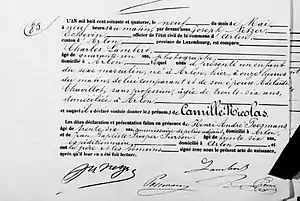 83.
L'AN mil huit cent soixante et quatorze, le neuf du mois de Mai
neuf heures du matin, par devant nous Joseph Netzer
Echevin officier de l'état civil de la commune d'Arlon
canton d'Arlon, province de Luxembourg, est comparu
Charles Lambert,
âgé de quarante un ans, photographe
domicilié à Arlon, lequel nous a présenté un enfant
du sexe masculin, né à Arlon, hier, à onze heures
du matin, de lui comparant et de son épouse
Charlot, sans profession, âgée de trente-six ans,
domiciliée à Arlon
et auquel il a déclaré vouloir donner les prénoms de Camille Nicolas
Les dites déclaration et présentation faites en présence de Henri André Possmans
âgé de trente six ans, commissaire de police adjoint, domicilié à Arlon,
et de Jean Prosper
âgé de trente six ans,
expéditionnaire, domicilié à Arlon; et
ont le père et les témoins signé avec nous le présent acte de naissance,
après qu'il leur en a été fait lecture.
Lambert
Possmans